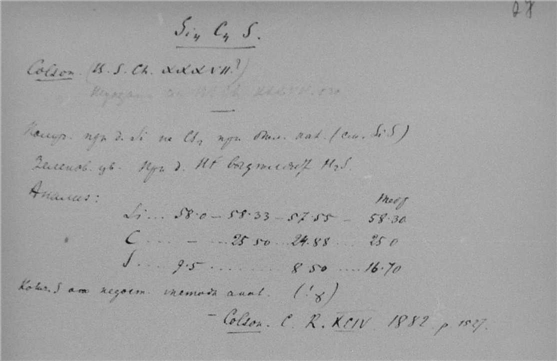 28
Si₄ C₄ S.
Colson. (B. S. Ch. XXXVII?)
Получ. при д. Si на CS₂ при выс. (см. SiS)
Зеленов. цв. При д. HF H₂S.
Анализ:
теор
Si ... 58·0 – 58·33 – 57·55 – 58·30
C ... – – 25 50 – 24·88 ... 25 0
S ... 9·5 ... 8 50 ... 16·70
Колич. S от недост. метода анал. (!γ)
– Colson. C. R. XCIV 1882 p. 1527.